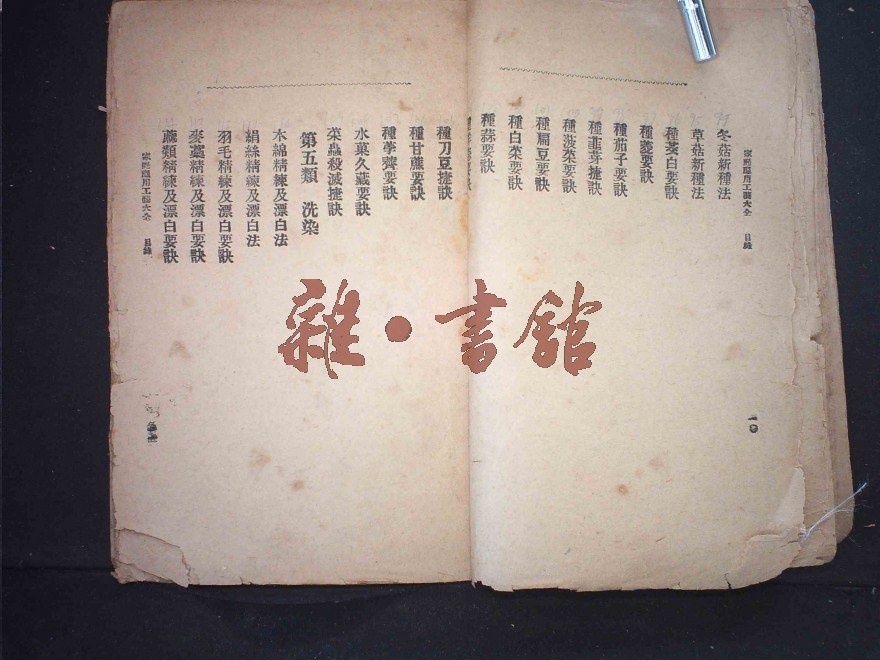 家庭應用工藝大全 目錄
冬菇新種法
草菇新種法
種茭白要訣
種菱要訣
種茄子要訣
種韮芽捷訣
種菠菜要訣
種扁豆要訣
種白菜要訣
種蒜要訣
種刀豆捷訣
種甘蔗要訣
種荸薺要訣
水菓久藏要訣
菜蟲殺滅捷訣
第五類 洗染
木綿精練及漂白法
絹絲精練及漂白法
羽毛精練及漂白要訣
麥藁精練及漂白要訣
蔴類精練及漂白要訣
目錄
一〇
雜·書館